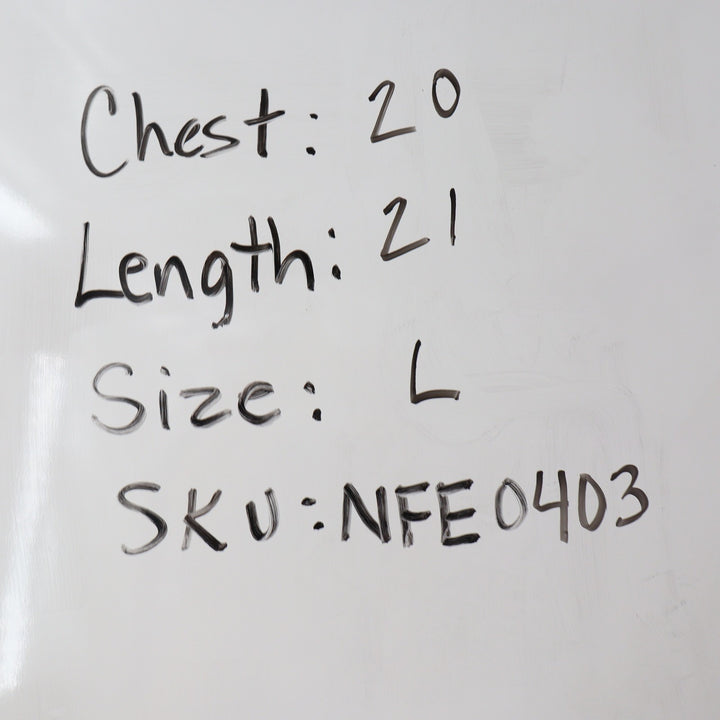 Chest: 20
Length: 21
Size: L
SKU:NFE0403